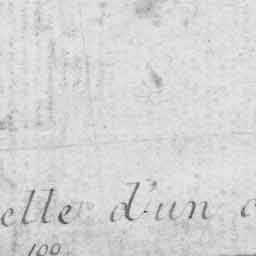 elle d'un
100